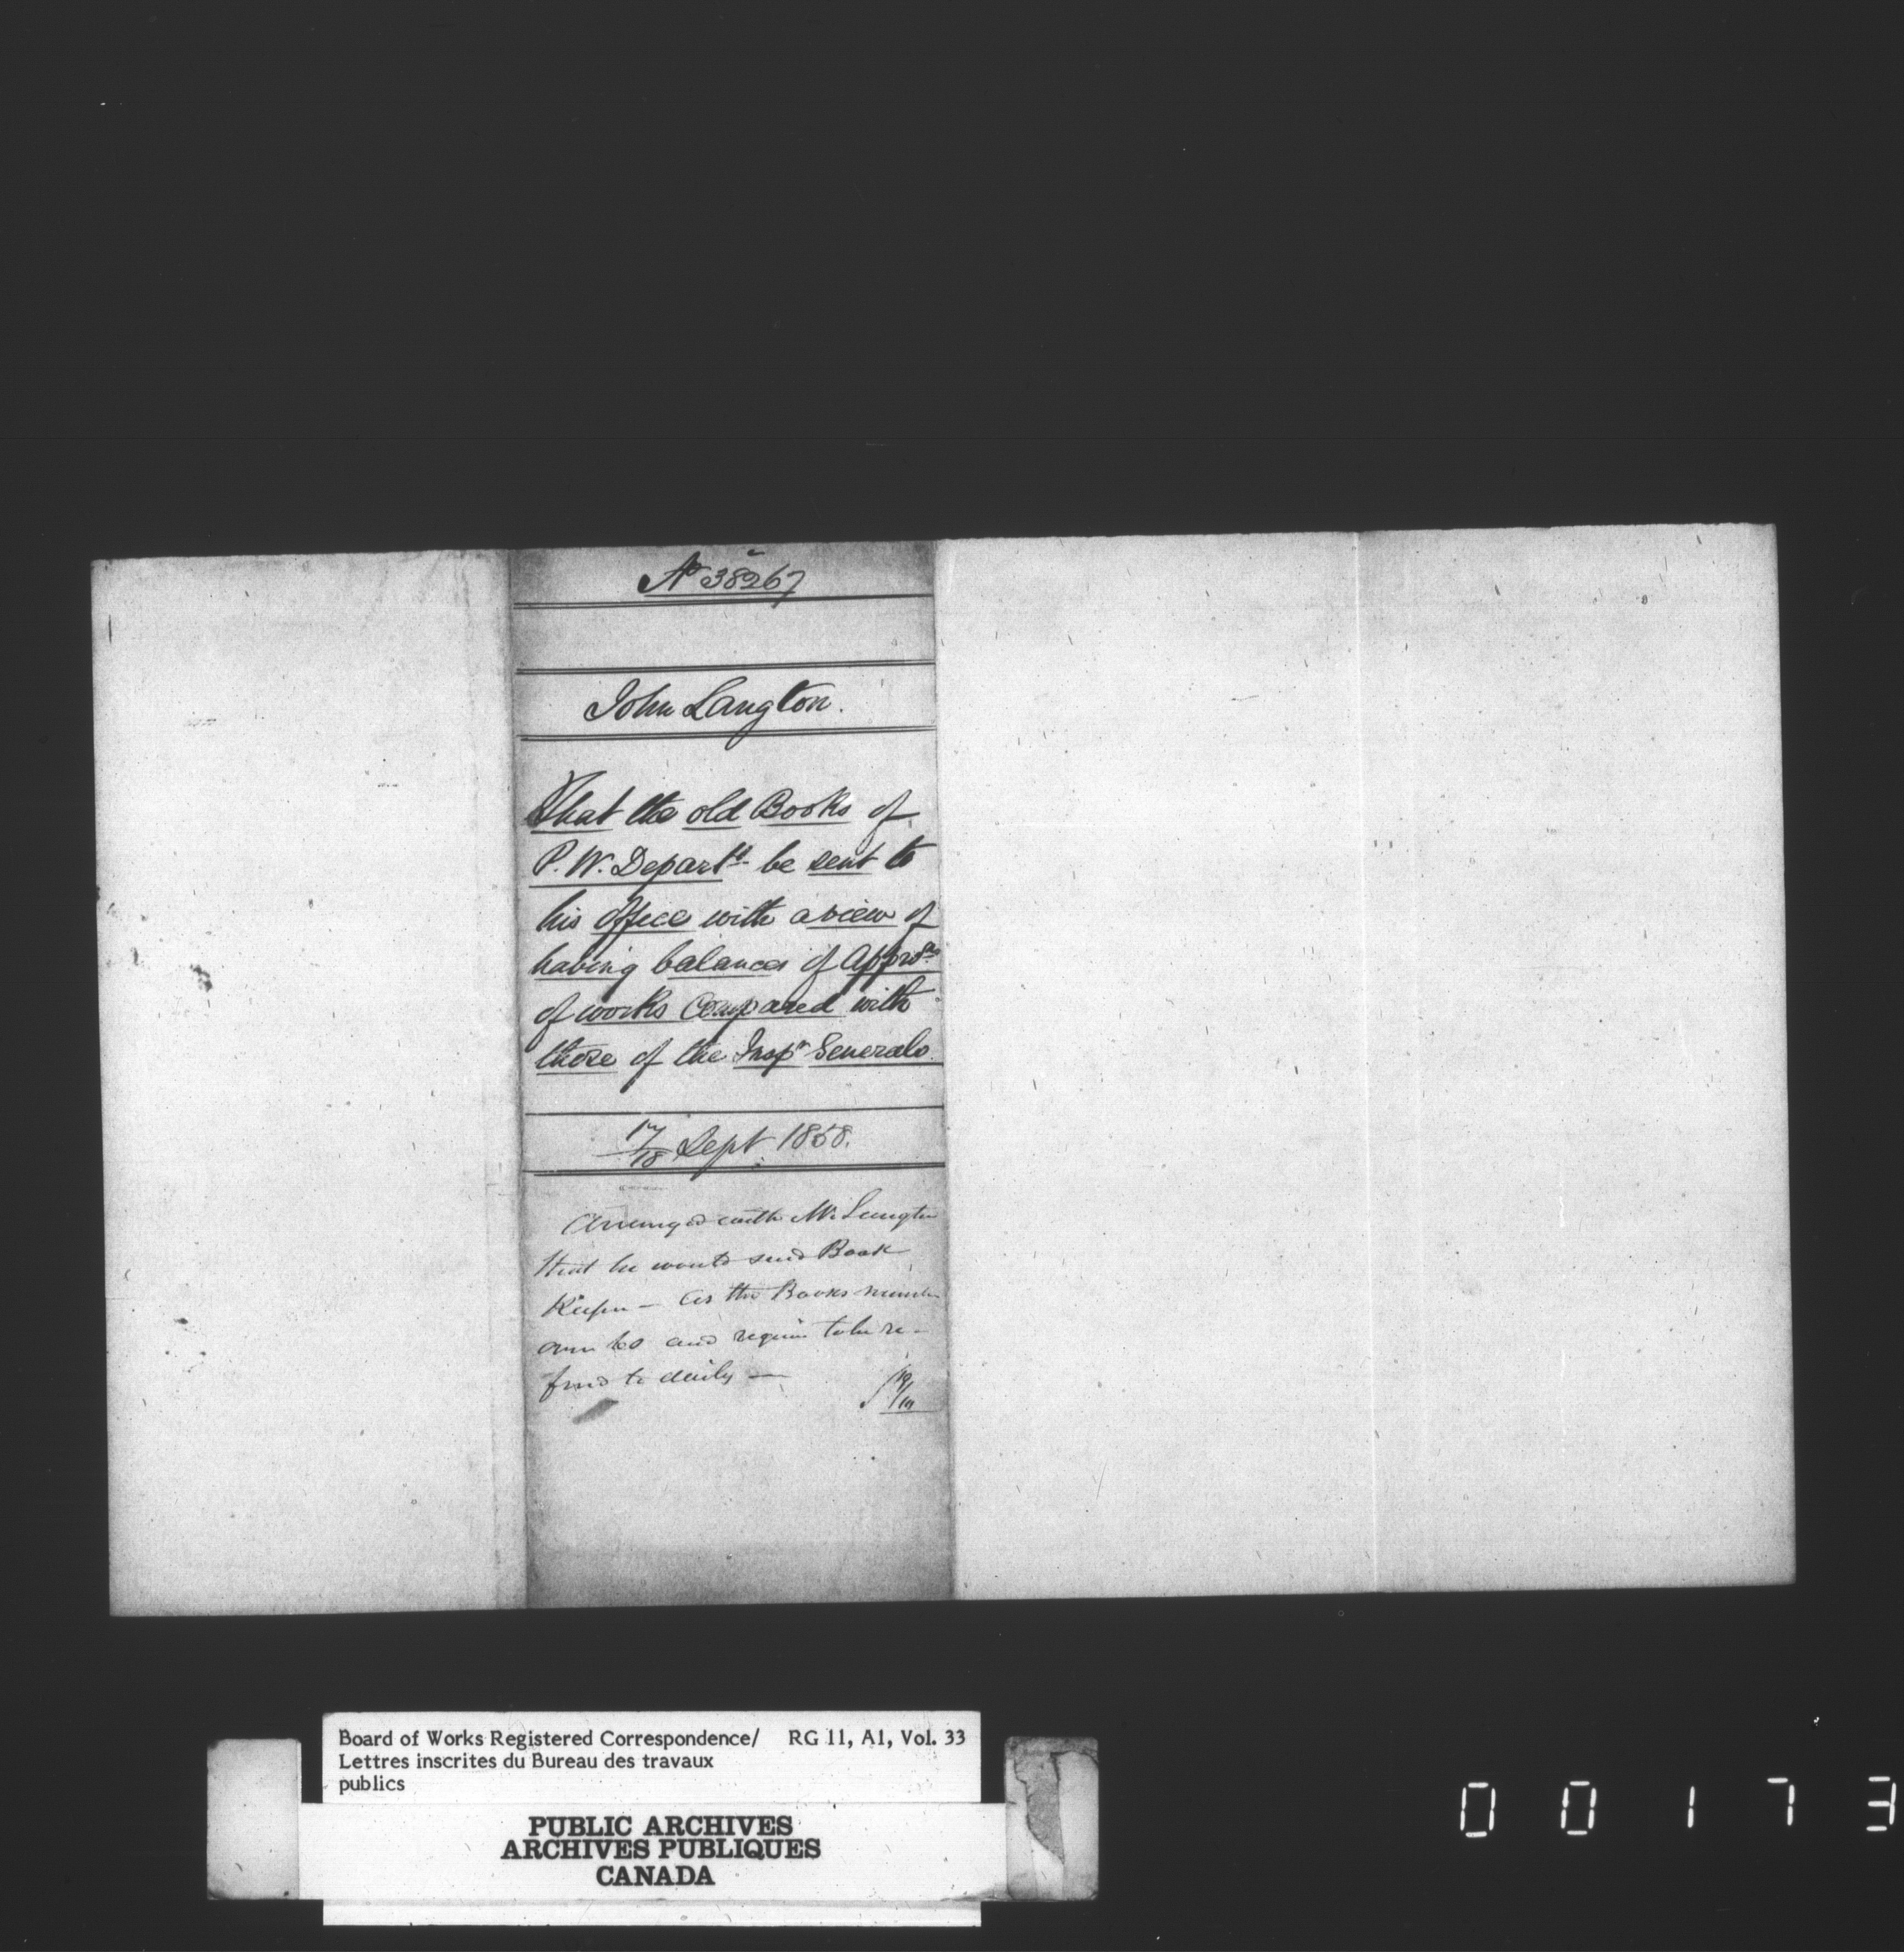 No 38267
John Langton.
That the old Books of
P. W. Departt be sent to
his office with a view of
having balances of Appros
of works Compared with
those of the Inspr Generals
17/18 Sept. 1858.
Arranged with Mr. Langton
that he would send Book
Keeper — as the Books number
over 60 and require to be re-
ferred to daily —
Board of Works Registered Correspondence/ RG 11, A1, Vol. 33
Lettres inscrites du Bureau des travaux
publics
PUBLIC ARCHIVES
ARCHIVES PUBLIQUES
CANADA
0 0 1 7 3